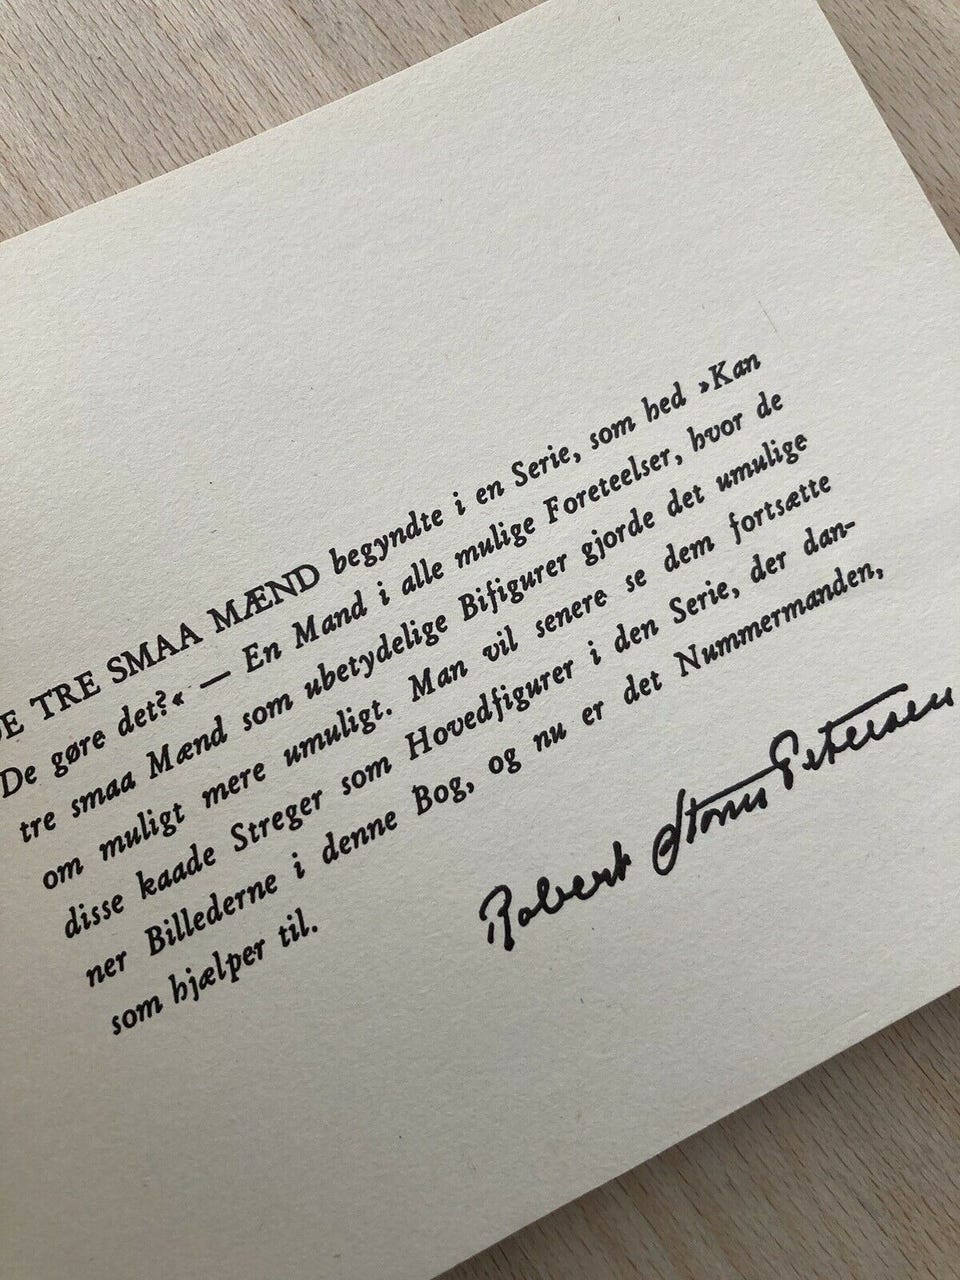 DE TRE SMAA MÆND begyndte i en Serie, som hed »Kan
De gøre det?« — En Mand i alle mulige Foreteelser, hvor de
tre smaa Mænd som ubetydelige Bifigurer gjorde det umulige
om muligt mere umuligt. Man vil senere se dem fortsætte
disse kaade Streger som Hovedfigurer i den Serie, der dan-
ner Billederne i denne Bog, og nu er det Nummermanden,
som hjælper til.
Robert Storm Petersen